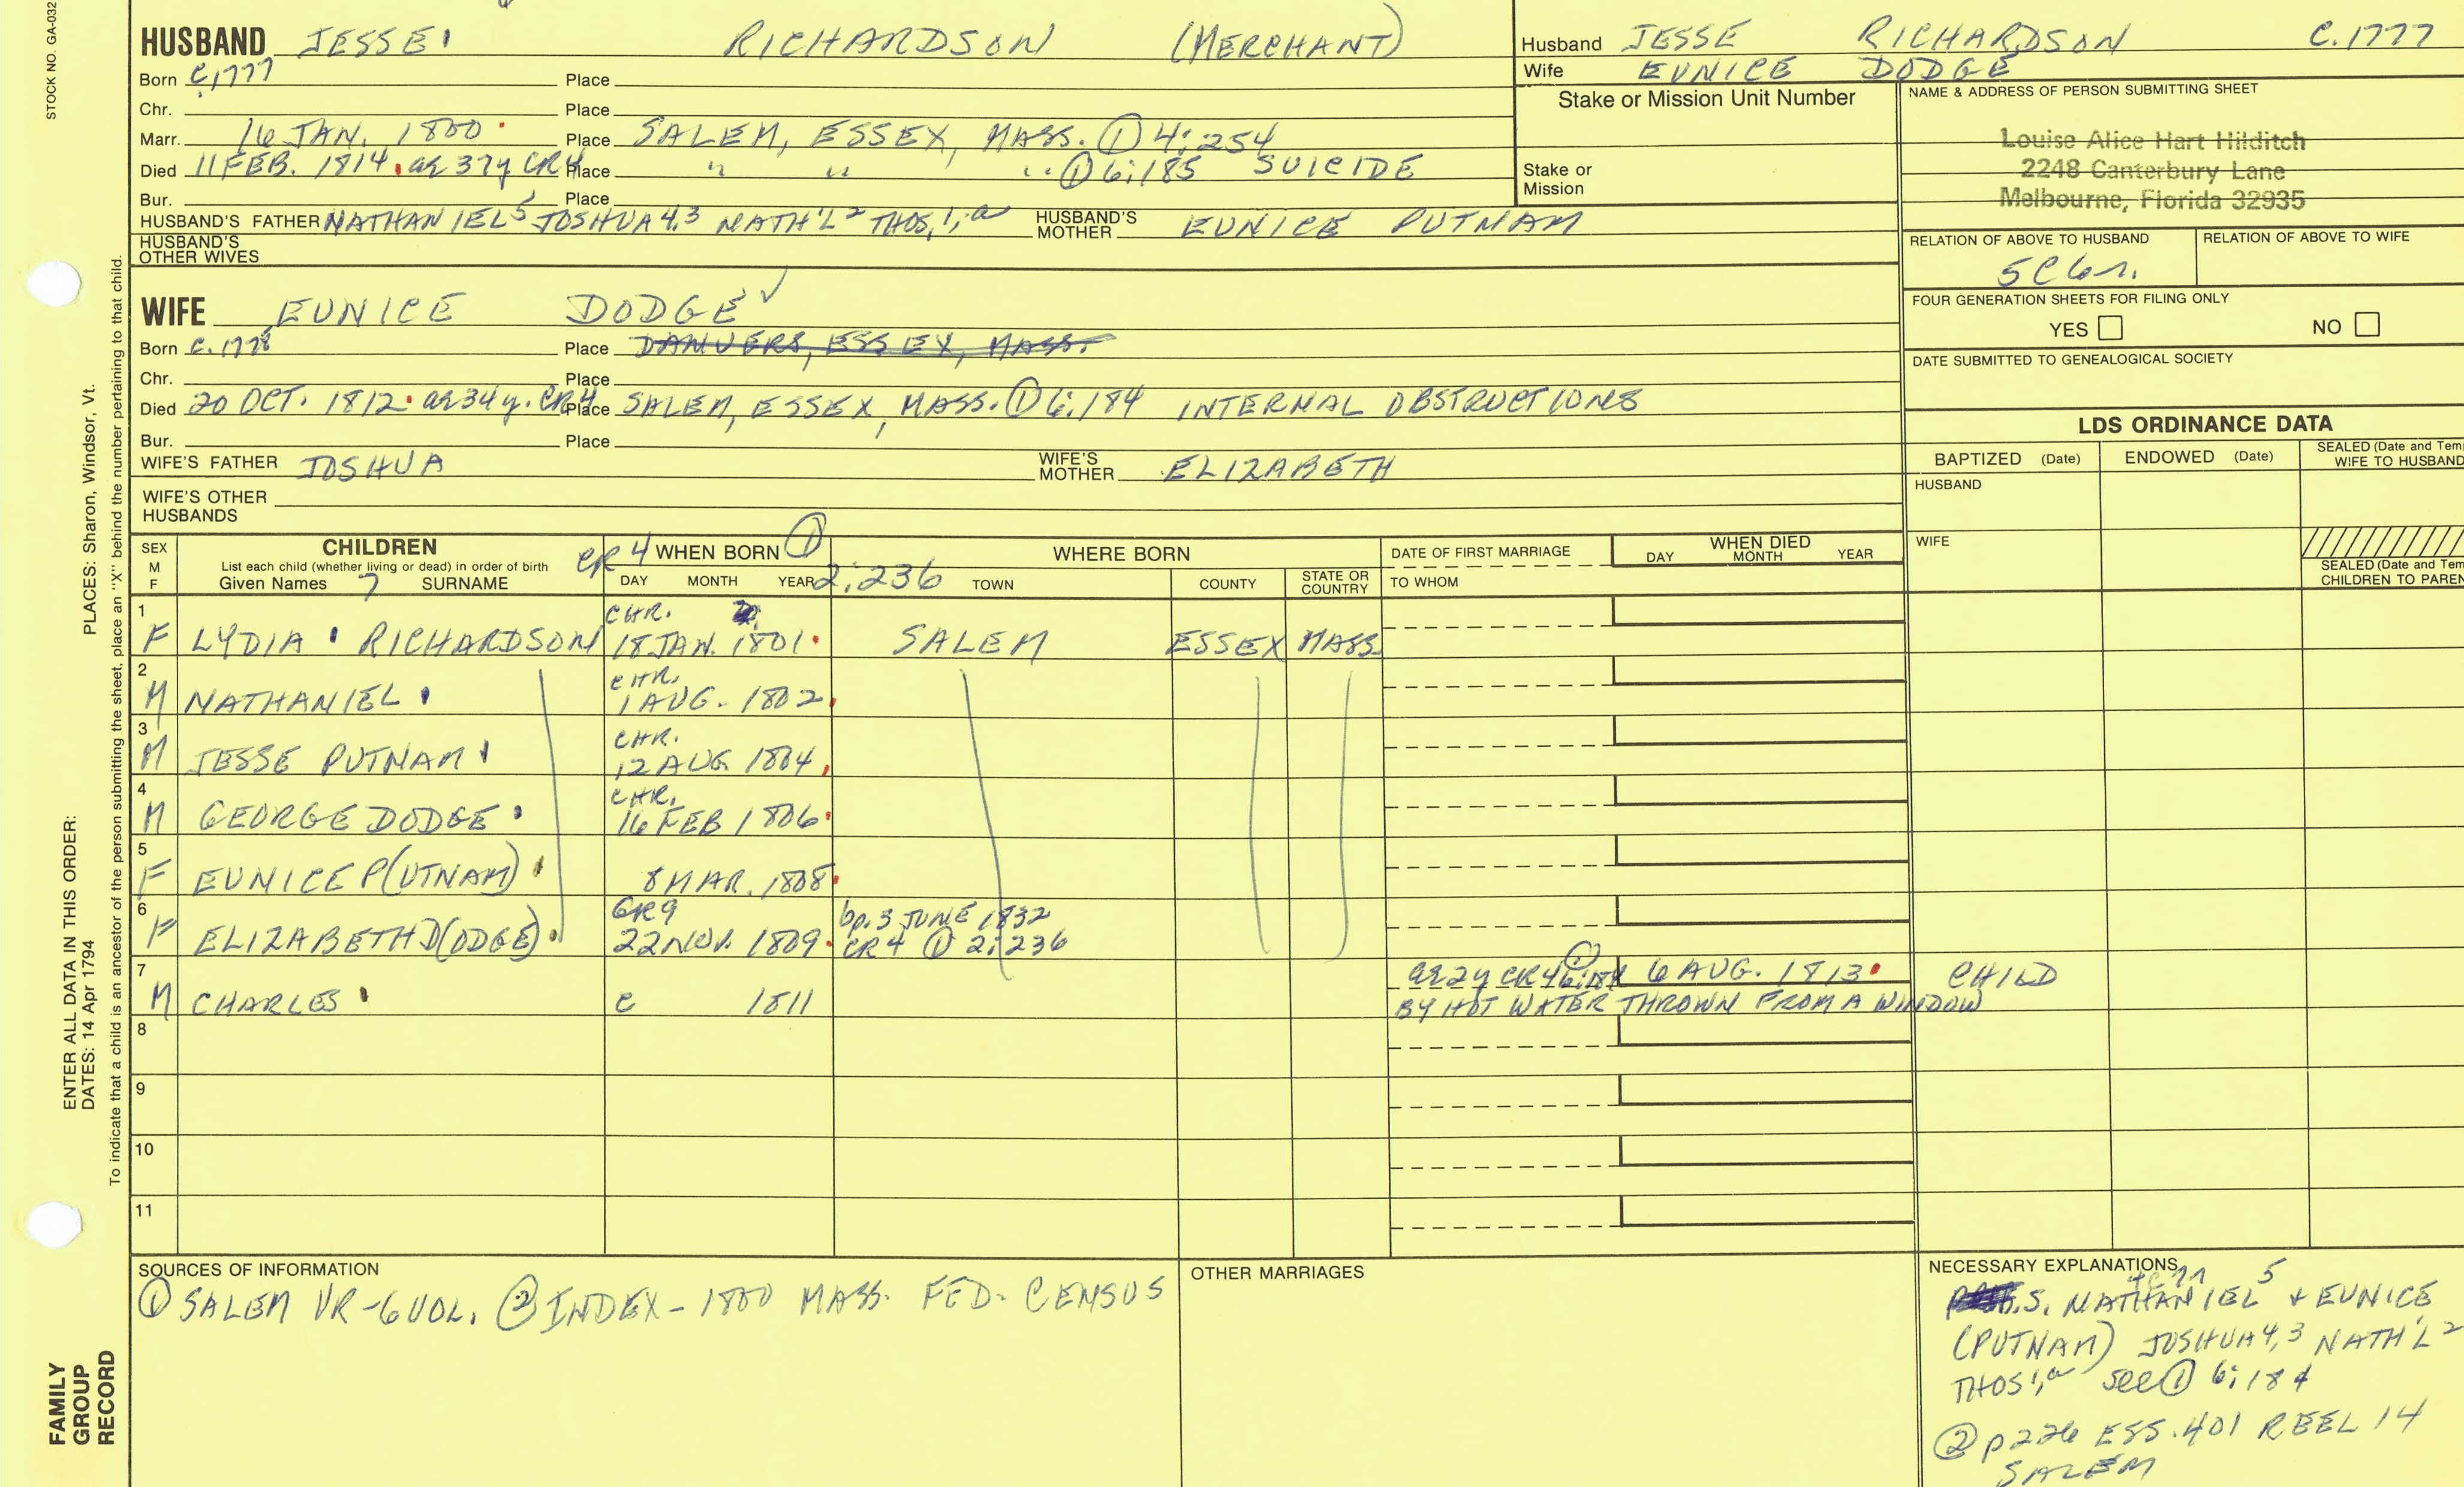 STOCK NO. GA-032
HUSBAND JESSE RICHARDSON (MERCHANT)
Born C.1777 Place
Chr. Place
Marr. 16 JAN. 1800 Place SALEM, ESSEX, MASS. ① 4:254
Died 11 FEB. 1814 ae 37y CR4 Place " " " ① 6:185 SUICIDE
Bur. Place
HUSBAND'S FATHER NATHANIEL5 JOSHUA4,3 NATH'L2 THOS,1,a HUSBAND'S MOTHER EUNICE PUTNAM
HUSBAND'S OTHER WIVES
WIFE EUNICE DODGE ✓
Born C.1778 Place DANVERS, ESSEX, MASS.
Chr. Place
Died 20 OCT. 1812 ae 34 y. CR4 Place SALEM, ESSEX, MASS. ① 6:184 INTERNAL OBSTRUCTIONS
Bur. Place
WIFE'S FATHER JOSHUA WIFE'S MOTHER ELIZABETH
WIFE'S OTHER HUSBANDS
Husband JESSE RICHARDSON C.1777
Wife EUNICE DODGE
Stake or Mission Unit Number
Stake or Mission
NAME & ADDRESS OF PERSON SUBMITTING SHEET
Louise Alice Hart Hilditch
2248 Canterbury Lane
Melbourne, Florida 32935
RELATION OF ABOVE TO HUSBAND RELATION OF ABOVE TO WIFE
5C6r.
FOUR GENERATION SHEETS FOR FILING ONLY
YES NO
DATE SUBMITTED TO GENEALOGICAL SOCIETY
LDS ORDINANCE DATA
BAPTIZED (Date) ENDOWED (Date) SEALED (Date and Tem
WIFE TO HUSBAND
HUSBAND
WIFE
SEALED (Date and Tem
CHILDREN TO PAREN
SEX M F CHILDREN CR4 WHEN BORN ① 2:236 WHERE BORN DATE OF FIRST MARRIAGE WHEN DIED
List each child (whether living or dead) in order of birth
Given Names 7 SURNAME DAY MONTH YEAR TOWN COUNTY STATE OR COUNTRY TO WHOM DAY MONTH YEAR
1 CHR.
F LYDIA RICHARDSON 18 JAN. 1801 SALEM ESSEX MASS.
2 CHR.
M NATHANIEL 1 AUG. 1802
3 CHR.
M JESSE PUTNAM 12 AUG 1804
4 CHR.
M GEORGE DODGE 16 FEB 1806
5
F EUNICE P(UTNAM) 8 MAR. 1808
6 CR9 bp. 3 JUNE 1832
F ELIZABETH D(ODGE) 22 NOV. 1809 CR4 ① 2:236
7 ae 2y CR4 ① 6:184 6 AUG. 1813 CHILD
M CHARLES c 1811 BY HOT WATER THROWN FROM A WINDOW
8
9
10
11
SOURCES OF INFORMATION
① SALEM VR-6 VOL. ② INDEX-1800 MASS. FED. CENSUS
OTHER MARRIAGES
NECESSARY EXPLANATIONS
S. NATHANIEL5 + EUNICE
(PUTNAM) JOSHUA4,3 NATH'L2
THOS1,a see ① 6:184
② p226 ESS. 401 REEL 14
SALEM
PLACES: Sharon, Windsor, Vt.
To indicate that a child is an ancestor of the person submitting the sheet, place an "X" behind the number pertaining to that child.
ENTER ALL DATA IN THIS ORDER:
DATES: 14 Apr 1794
FAMILY
GROUP
RECORD